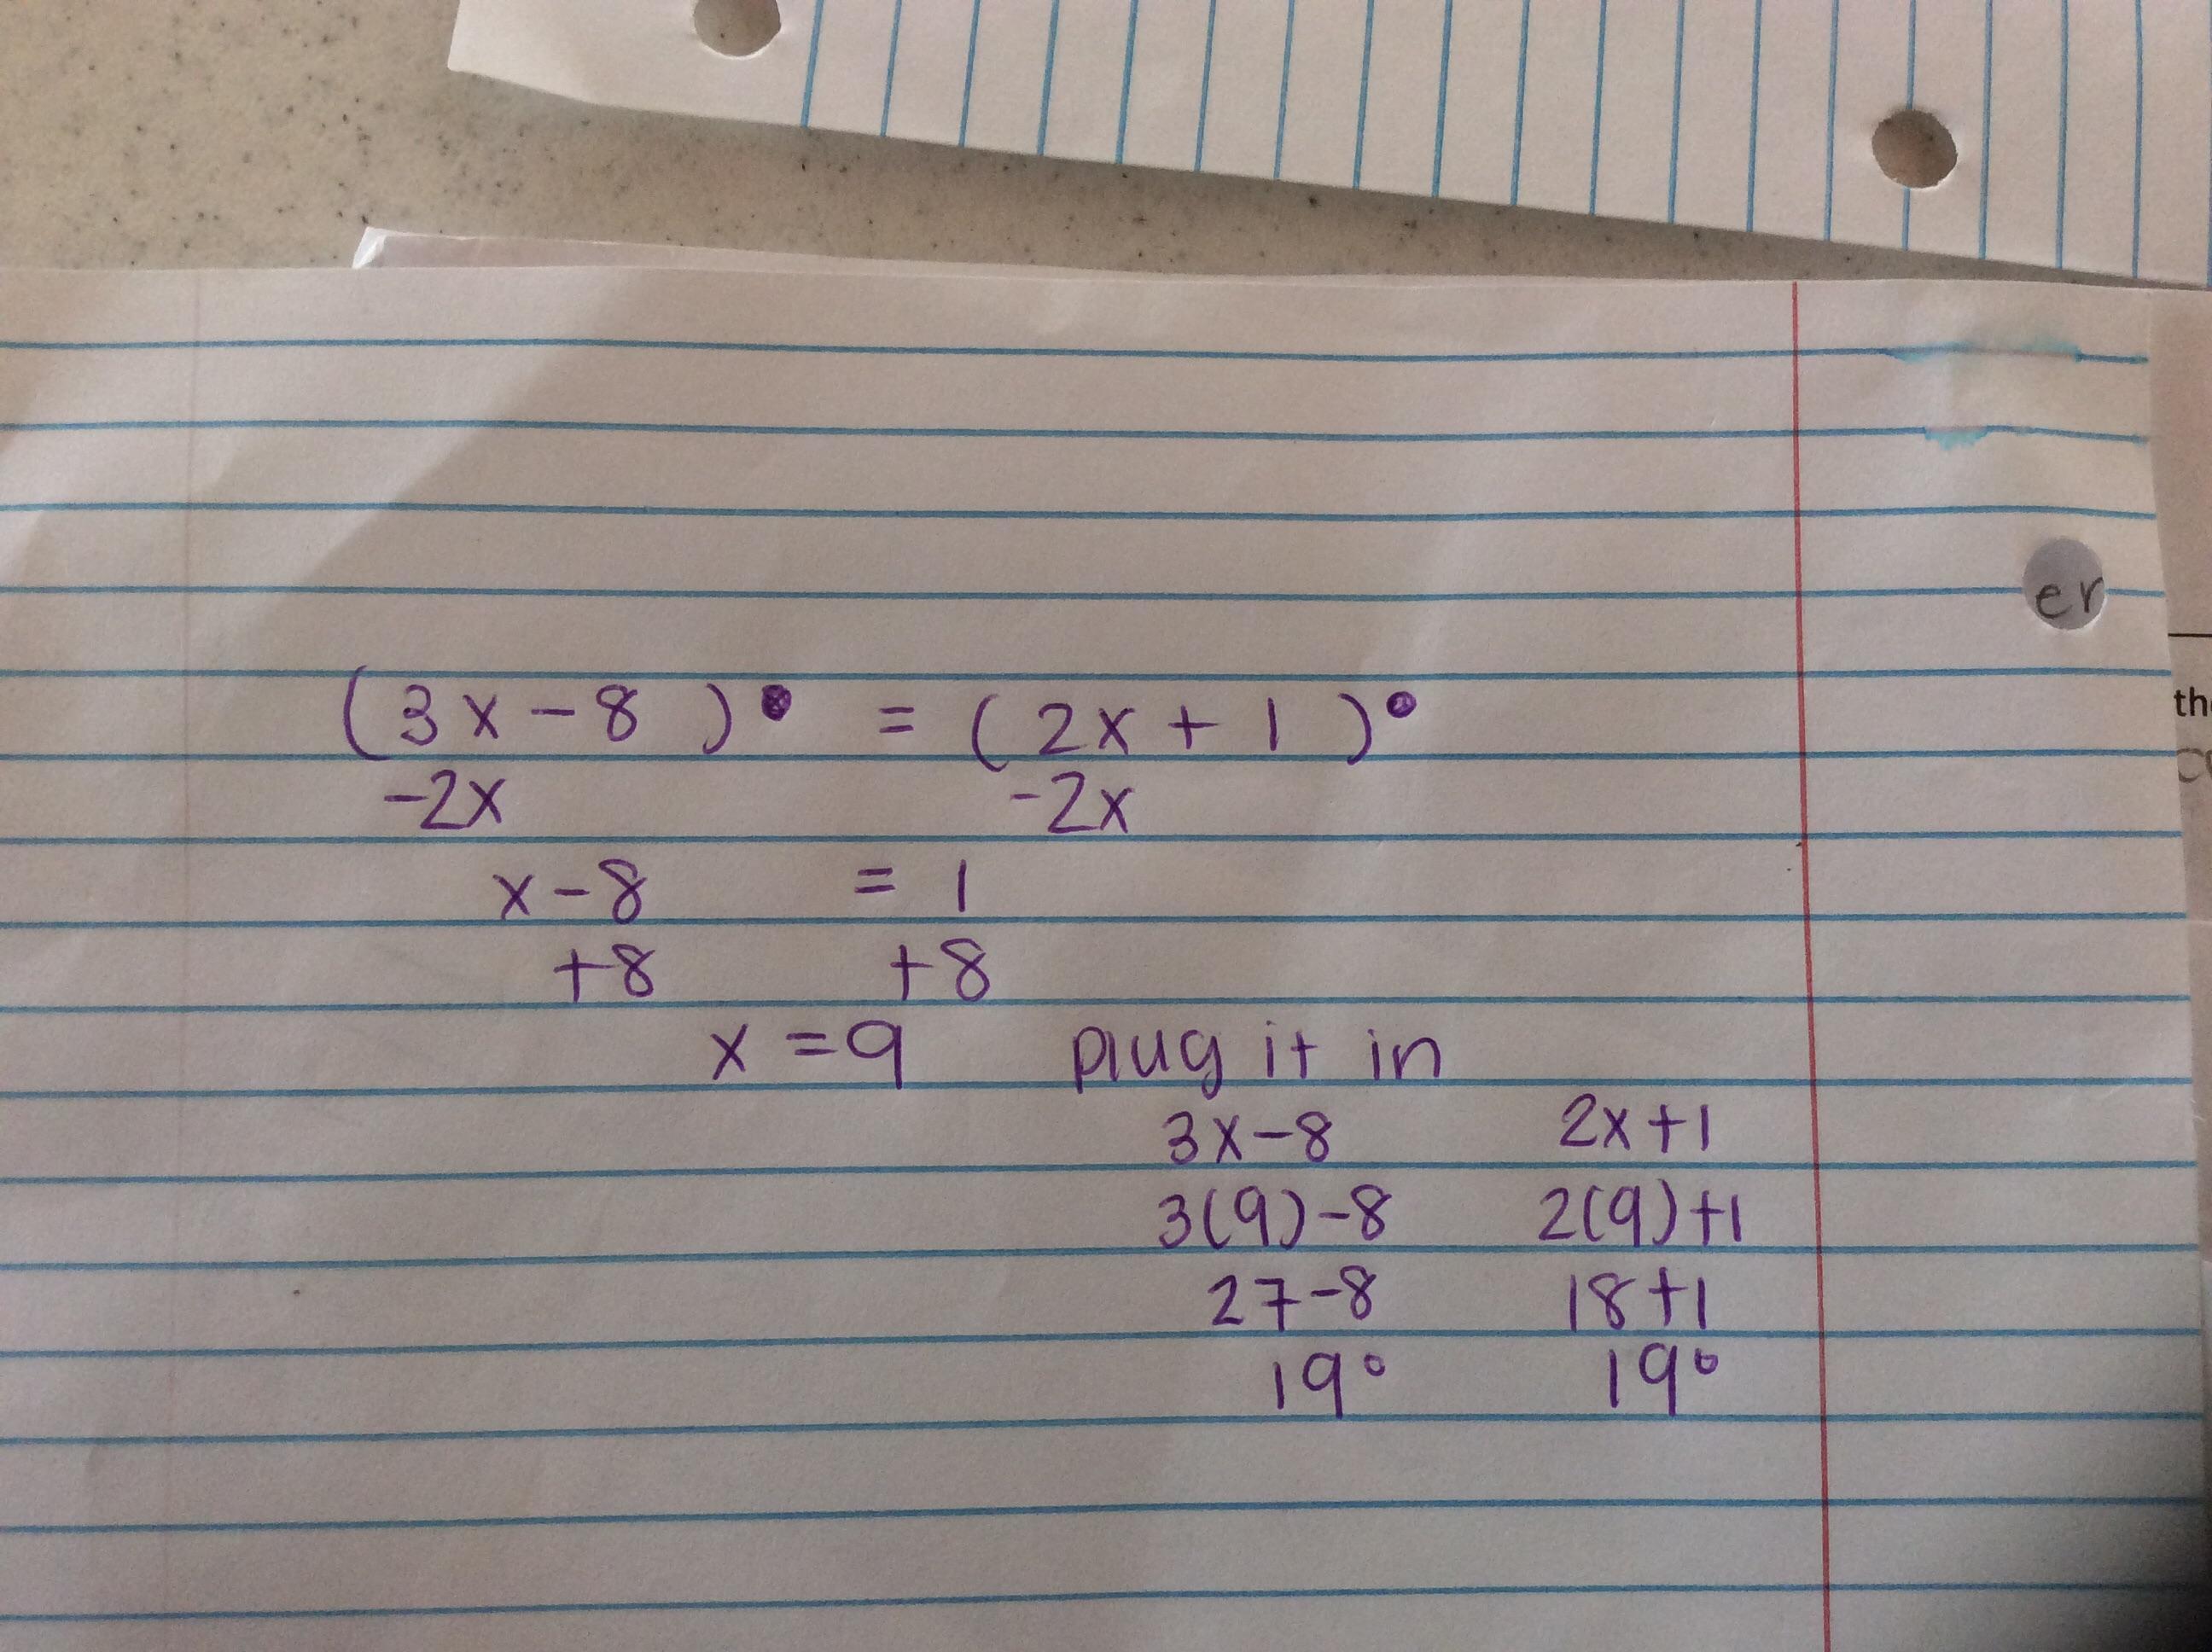 er
th
(3x-8)° = (2x+1)°
-2x -2x
x-8 = 1
+8 +8
x = 9 plug it in
3x-8 2x+1
3(9)-8 2(9)+1
27-8 18+1
19° 19°